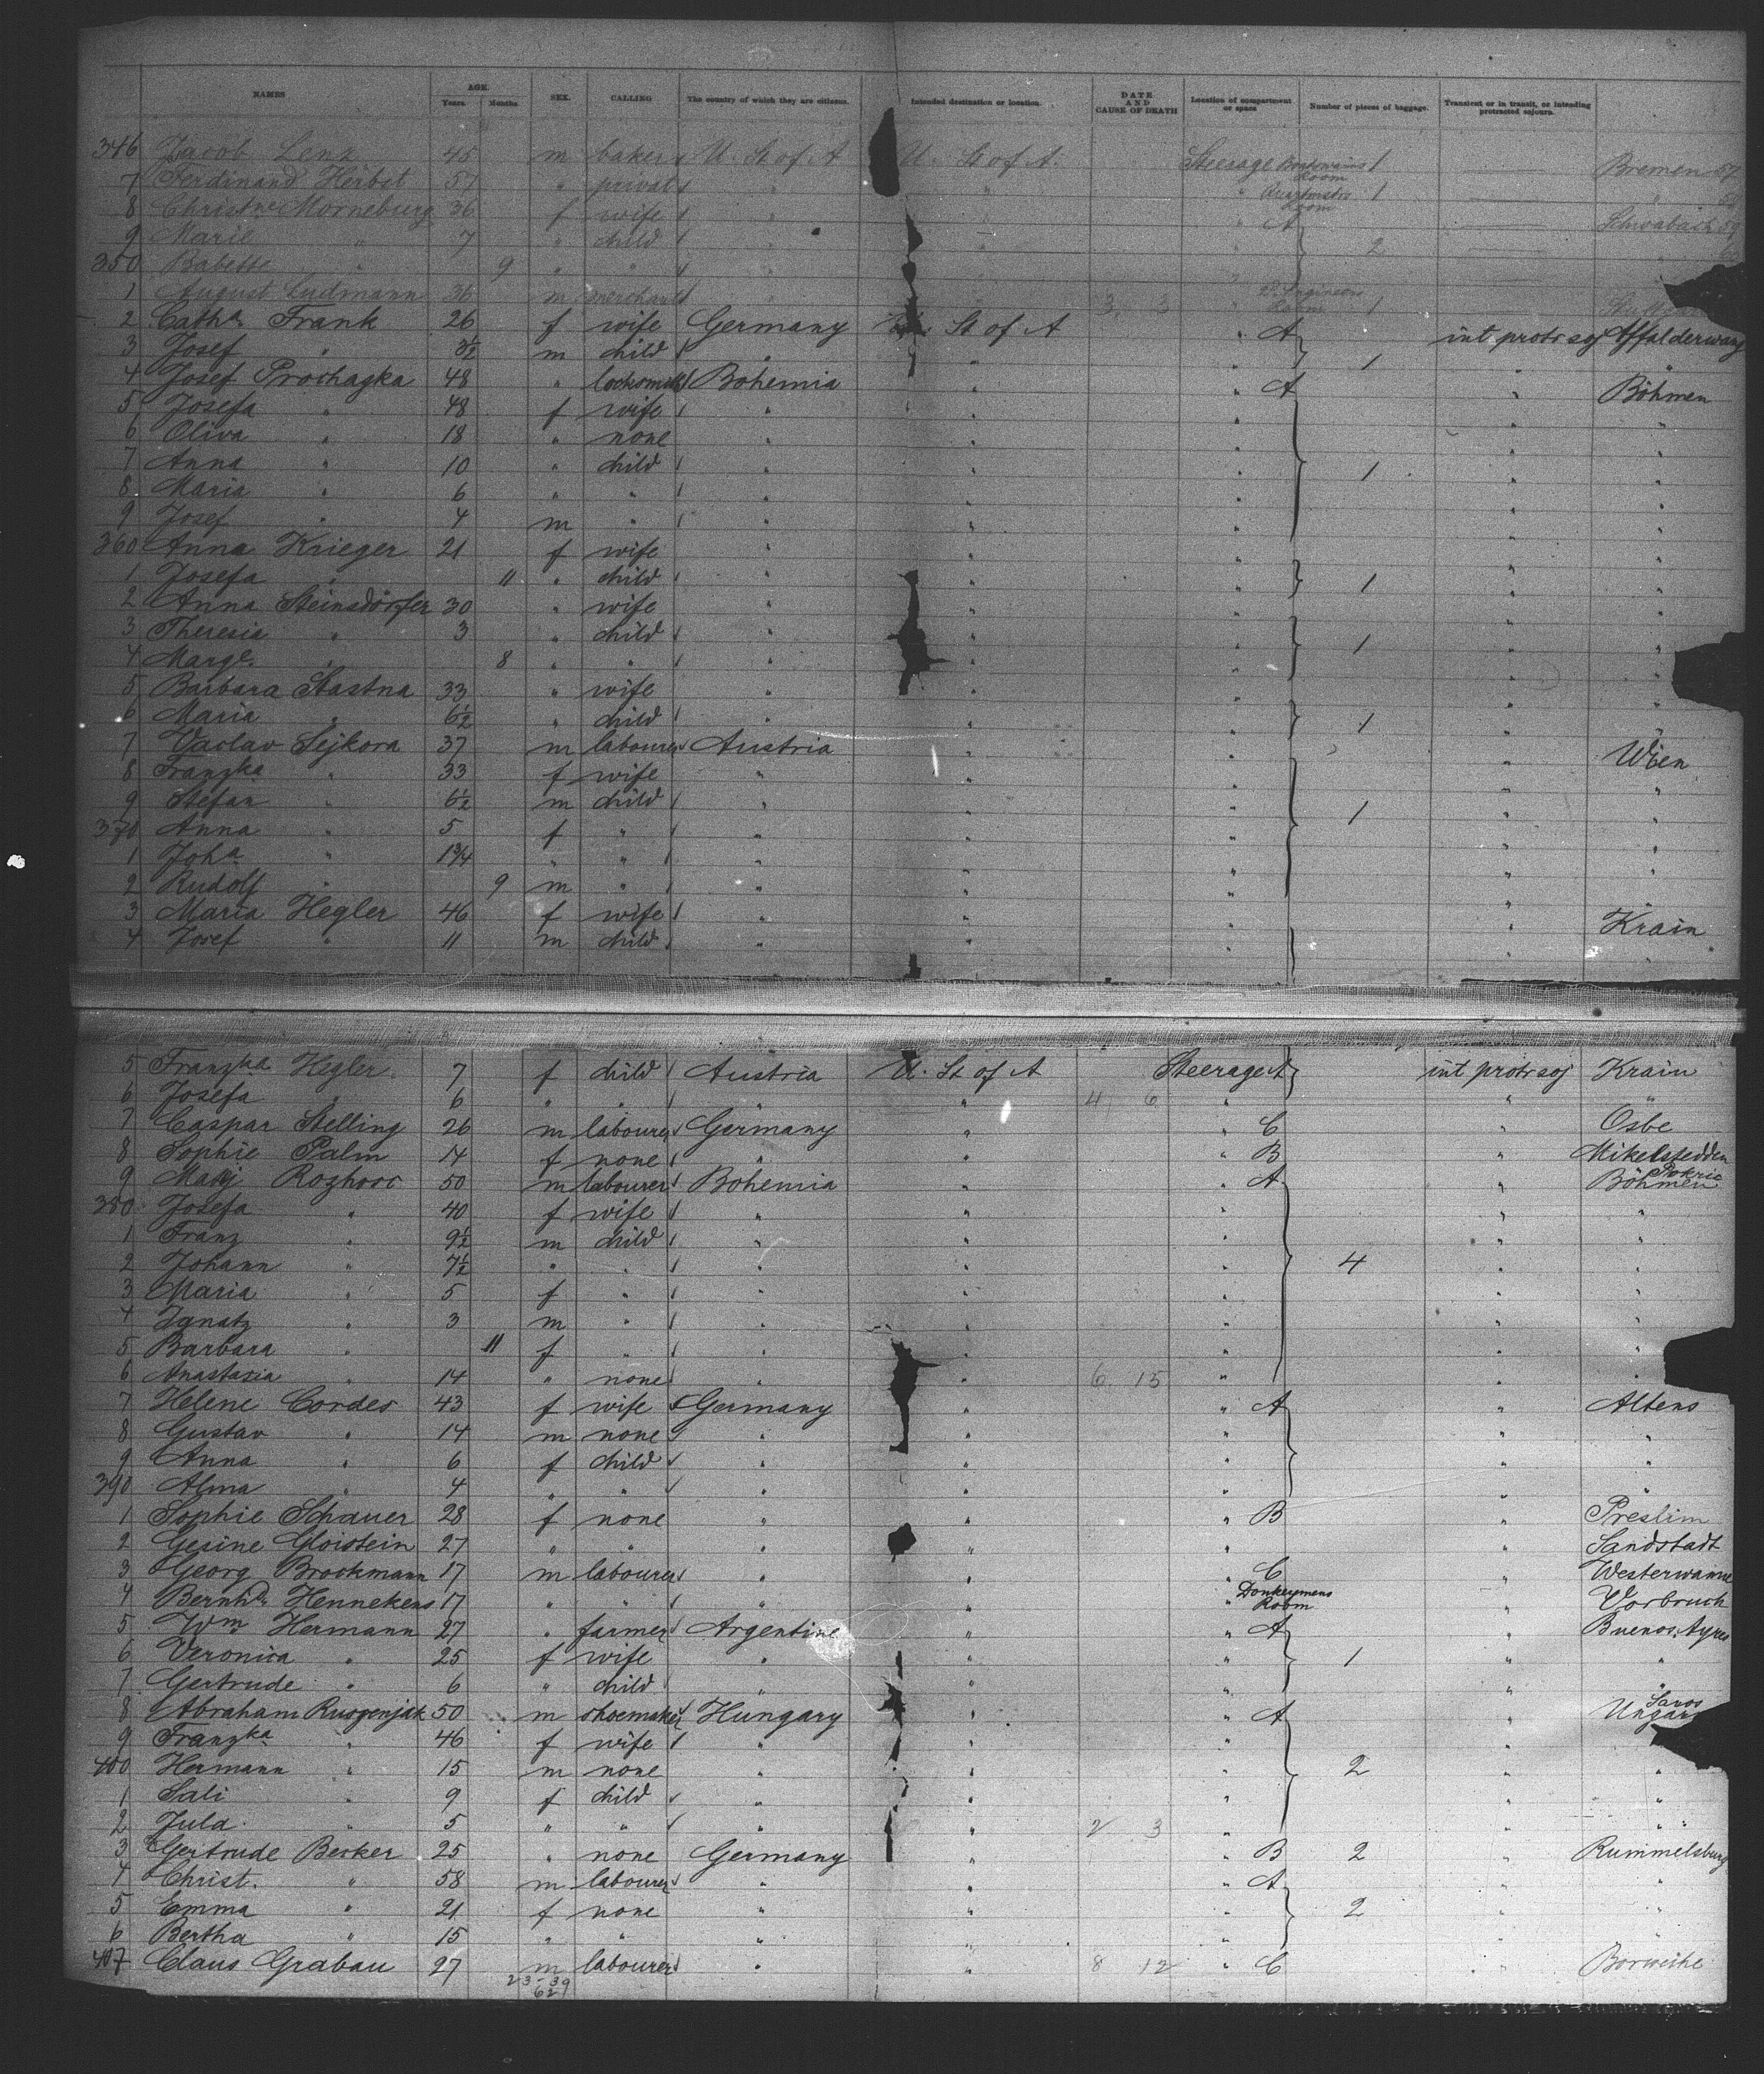 NAMES AGE. Years. Months. SEX. CALLING The country of which they are citizens. Intended destination or location. DATE AND CAUSE OF DEATH Location of compartment or space Number of pieces of baggage. Transient or in transit, or intending protracted sojourn.
346 Jacob Lenz 45 m baker U. St of A U. St of A. Steerage Boatswains Room 1 Bremen 57
7 Ferdinand Herbst 57 " privat " " " Quartmstrs Room 1 "
8 Christne Morneburg 36 f wife " " " A Schwabach 59
9 Marie " 7 " child " " " 2 "
350 Babette " 9 " " " " "
1 August Ludmann 36 m merchant " 3. 3 " 2d Engineers Room 1
2 Catha Frank 26 f wife Germany St of A " A int protr soj Affalderwang
3 Josef " 3½ m child " " " 1 " "
4 Josef Prochazka 48 " locksmith Bohemia " " A " Böhmen
5 Josefa " 48 f wife " " " " "
6 Oliva " 18 " none " " " " "
7 Anna " 10 " child " " " 1 " "
8 Maria " 6 " " " " " " "
9 Josef " 4 m " " " " " "
360 Anna Krieger 21 f wife " " " " "
1 Josefa " 11 " child " " " 1 " "
2 Anna Steinsdörfer 30 " wife " " " " "
3 Theresia " 3 " child " " " 1 " "
4 Marge. " 8 " " " " " " "
5 Barbara Stastna 33 " wife " " " " "
6 Maria " 6½ " child " " " 1 " "
7 Vaclav Sejkora 37 m labourer Austria " " " Wien
8 Franzka " 33 f wife " " " " "
9 Stefan " 6½ m child " " " 1 " "
370 Anna " 5 f " " " " " "
1 Joha " 1¾ " " " " " " "
2 Rudolf " 9 m " " " " " "
3 Maria Hegler 46 f wife " " " " Krain
4 Josef " 11 m child " " " " "
5 Franzka Hegler 7 f child Austria U. St of A Steerage A int protr soj Krain
6 Josefa " 6 " " " " 4 6 " " "
7 Caspar Stelling 26 m labourer Germany " " C " Osbe
8 Sophie Palm 14 f none " " " B " Mikelstedden
9 Matij Rozhorc 50 m labourer Bohemia " " A " Böhmen
380 Josefa " 40 f wife " " " " "
1 Franz " 9½ m child " " " " "
2 Johann " 7½ " " " " " 4 " "
3 Maria " 5 f " " " " " "
4 Ignatz " 3 m " " " " " "
5 Barbara " 11 f " " " " " "
6 Anastasia " 14 " none " " 6. 15 " " "
7 Helene Cordes 43 f wife Germany " " A " Altens
8 Gustav " 14 m none " " " " "
9 Anna " 6 f child " " " " "
390 Alma " 4 " " " " " " "
1 Sophie Schauer 28 f none " " " B " Preslim
2 Gesine Gloistein 27 " " " " " " Sandstadt
3 Georg Brockmann 17 m labourer " " " C " Westerwanne
4 Bernhd. Hennekens 17 " " " " " Donkeymens Room " Vorbruch
5 Wm Hermann 27 " farmer Argentine " " A " Buenos Ayres
6 Veronica " 25 f wife " " " 1 " "
7 Gertrude " 6 " child " " " "
8 Abraham Rusgenjak 50 m shoemaker Hungary " " A " Saros Ungarn
9 Franzka " 46 f wife " " " "
400 Hermann " 15 m none " " " 2 " "
1 Sali " 9 f child " " " " "
2 Jula " 5 " " " " 2 3 " " "
3 Gertrude Becker 25 " none Germany " " B 2 " Rummelsburg
4 Christ. " 58 m labourer " " " A " "
5 Emma " 21 f none " " " 2 " "
6 Bertha " 15 " " " " " " "
407 Claus Grabau 27 m labourer " " 8 12 " C " Borweihe
23-39
62